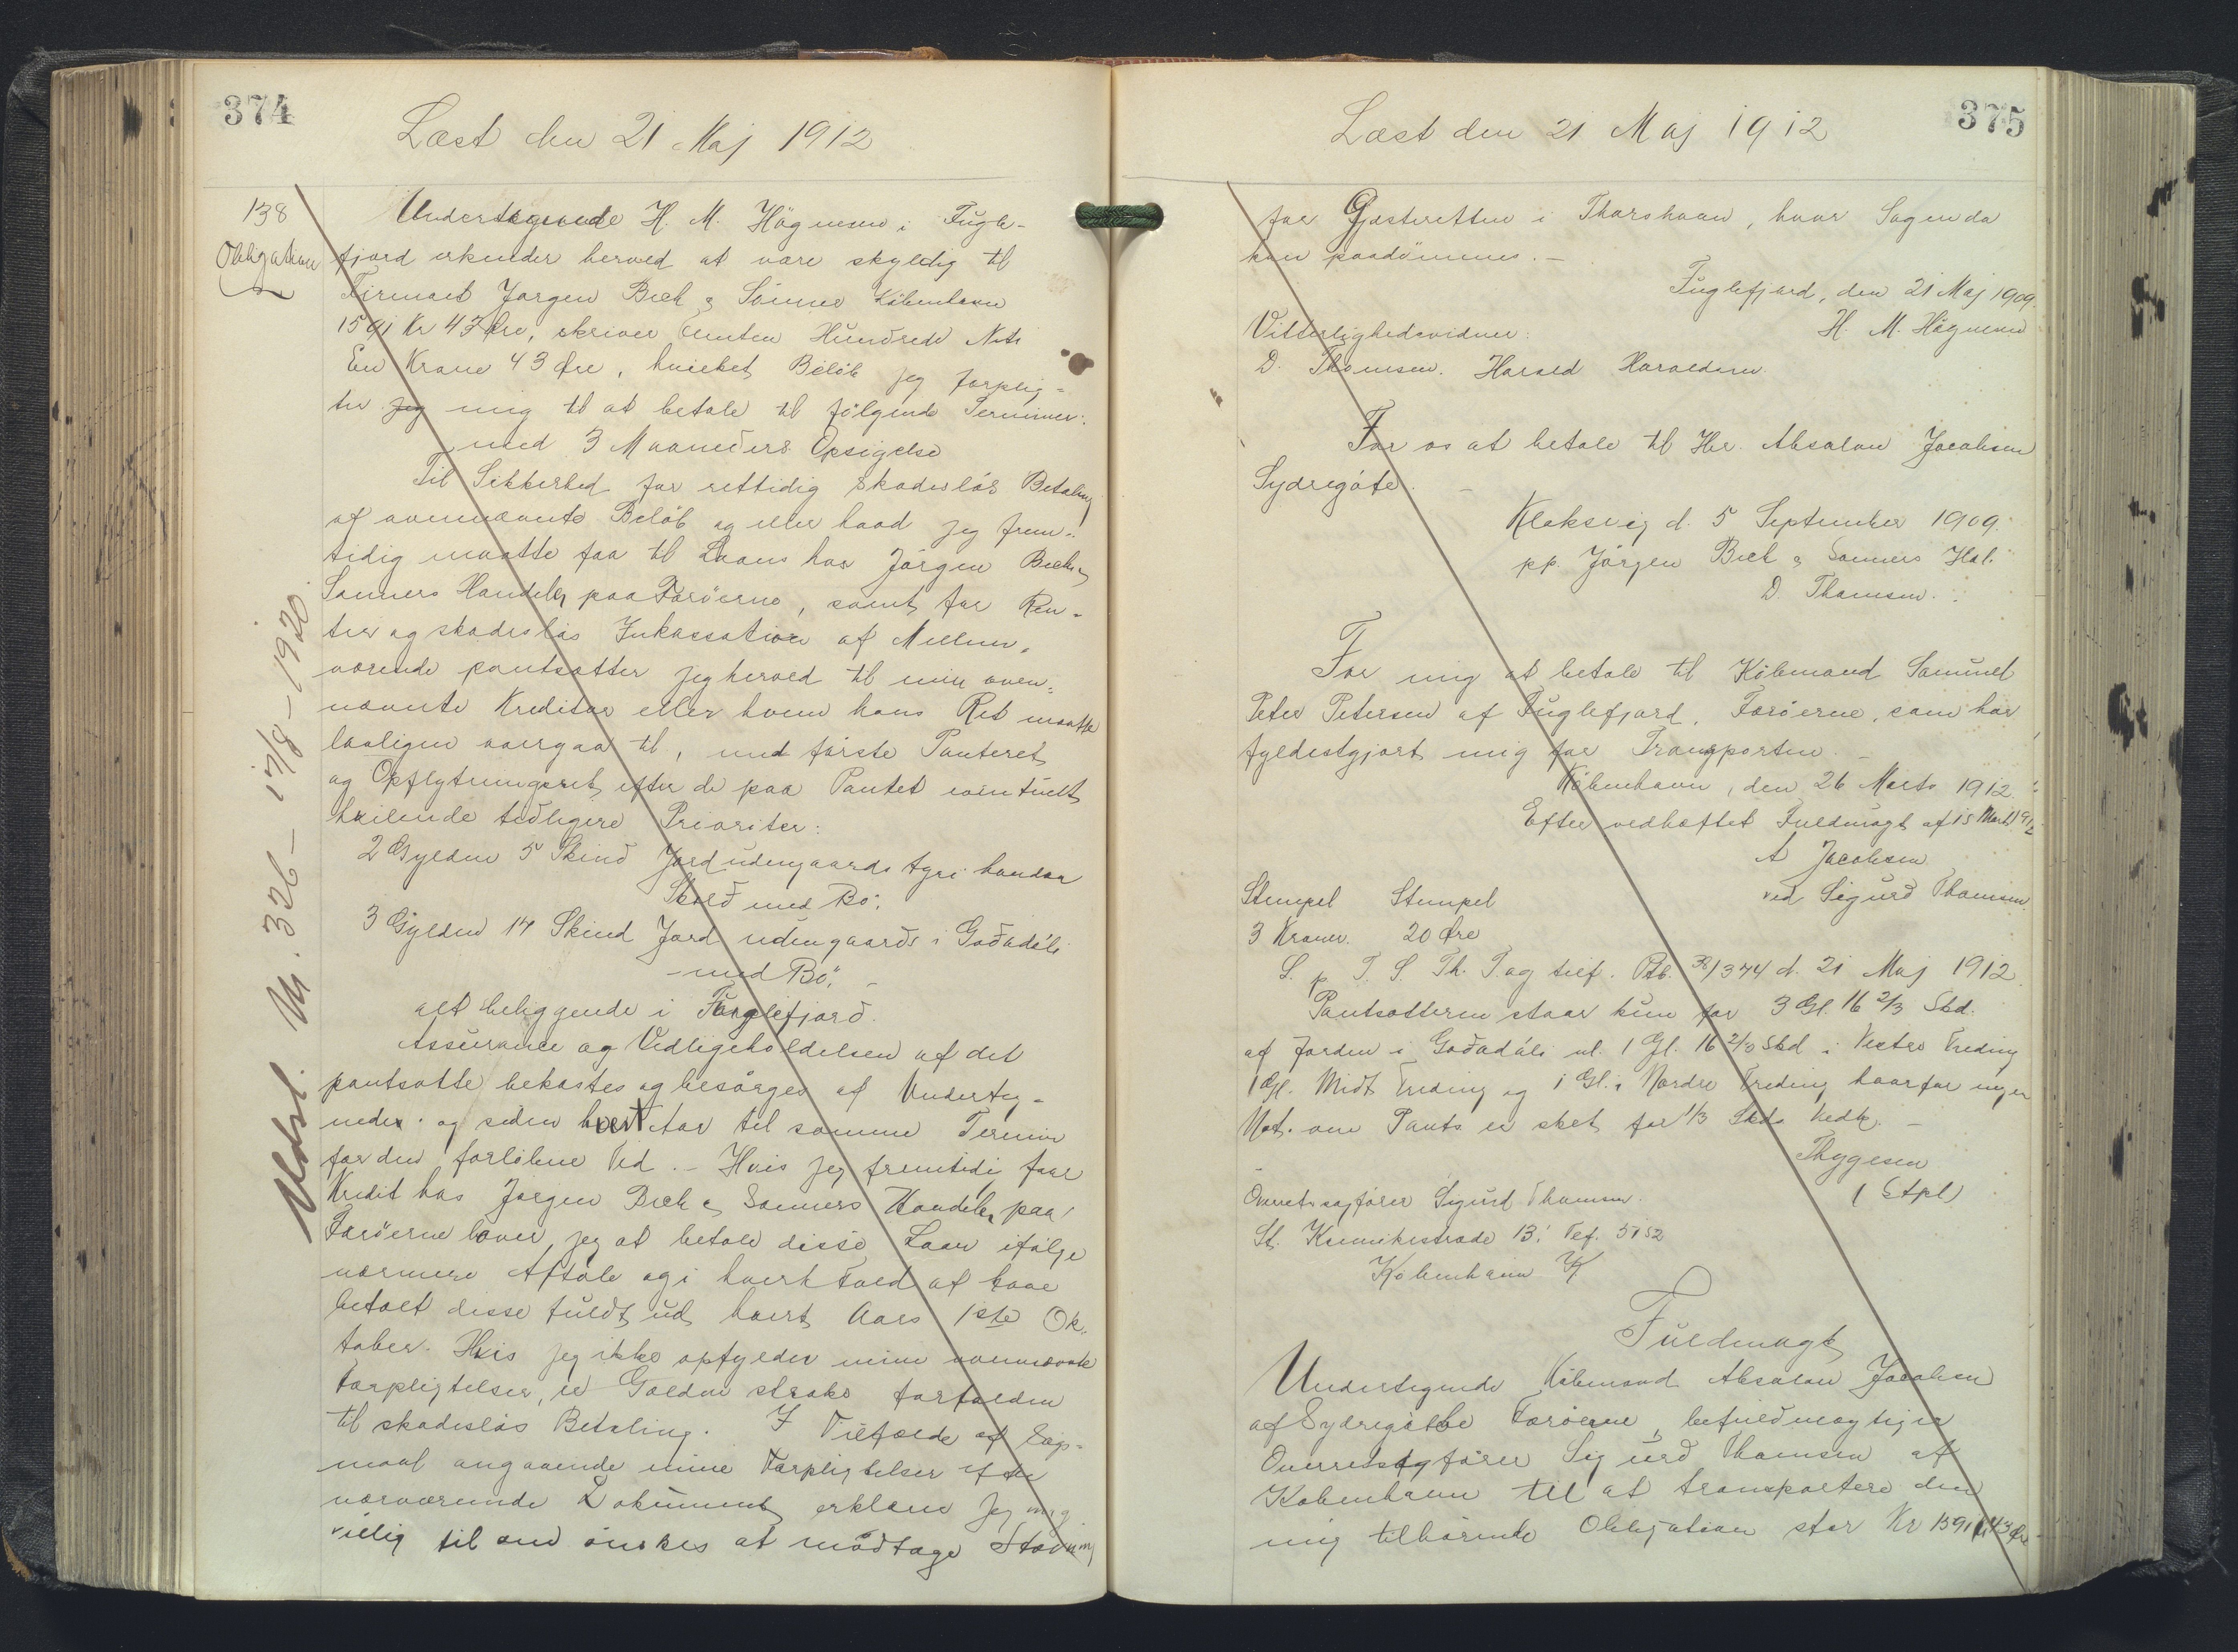 374
Læst den 21 Maj 1912
138
Obligation
Undertegnede H. M. Högnesen i Fugle-
fjord erkender herved at være skyldig til
Firmaet Jørgen Bech & Sönner København
1591 Kr 43 Øre, skriver Femten Hundrede Niti
En Krone 43 Øre, hvilket Beløb jeg forplig-
ter jeg mig til at betale til følgende Terminer:
med 3 Maaneders Opsigelse
Til Sikkerhed for rettidig skadesløs Betaling
af ovennævnte Beløb og eller hvad jeg frem-
tidig maatte faa til Laans hos Jörgen Bech &
Sönners Handeler paa Færöerne, samt for Ren-
ter og skadesløs Inkassation af Mellem-
værende pantsætter jeg herved til min oven-
nævnte Kreditor eller hvem hans Ret maatte
lovligen overgaa til, med første Panteret
og Opflytningsret efter de paa Pantet eventuelt
hvilende tidligere Prioriter:
2 Gylden 5 Skind Jord udengaards Agri handar
Skorð med Bö,
3 Gylden 14 Skind Jord udengaards i Goðadáli
med Bö,
alt beliggende i Fuglefjord.
Assurance og Vedligeholdelsen af det
pantsatte bekostes og besørges af Underteg-
nede. og siden hvert Aar til samme Termin
for den forløbne Tid. - Hvis jeg fremtidig faar
Kredit hos Jørgen Bech & Sønners Handeler paa
Færöerne lover jeg at betale disse Laan ifølge
nærmere Aftale og i hvert Fald at have
betalt disse fuldt ud hvert Aars 1ste Ok-
tober. Hvis jeg ikke opfylder mine ovennævnte
Forpligtelser, er Gælden straks forfalden
til skadesløs Betaling. I Tilfælde af Sags-
maal angaaende mine Forpligtelser efter
nærværende Dokument erklærer jeg mig
villig til om ønskes at modtage Stævning
Udsl. M. 326 - 17/8 - 1920.
375
Læst den 21 Maj 1912
for Gjæsteretten i Thorshavn, hvor Sagen da
kan paadömmes. -
Fuglefjord, den 21 Maj 1909.
H. M. Högnesen
Vitterlighedsvidner:
D. Thomsen. Harald Haraldsen
For os at betale til Hr. Absalon Jacobsen
Sydregöte. -
Klaksvig d. 5 September 1909.
pp. Jörgen Bech & Sønners Hdl.
D. Thomsen.
For mig at betale til Köbmand Samuel
Peter Petersen af Fuglefjord, Færöerne, som har
fyldestgjort mig for Transporten. -
Köbenhavn, den 26 Marts 1912.
Efter vedhæftet Fuldmagt af 15 Marts 1912
A Jacobsen
ved Sigurd Thomsen.
Stempel Stempel
3 Kroner. 20 Øre
L. p T. S. Th. T. og tilf. Ptb. 38/374 d. 21 Maj 1912.
Pantsætteren staar kun for 3 Gl. 16 2/3 Skd.
af Jorden i Goðadáli nl. 1 Gl. 16 2/3 Skd i Vestre Treding
1 Gl. Midt Treding og 1 Gl. i Nordre Treding hvorfor ingen
Not. om Pants er sket for 1/3 Skds Vedk. -
Thygesen
(Stpl)
Overretssagfører Sigurd Thomsen.
St. Kannikestræde 13. Telf. 5152
København K
Fuldmagt
Undertegnede Købmand Absalon Jacobsen
af Sydregöte Færöerne, befuldmægtiger
Overretssagfører Sigurd Thomsen af
København til at transportere den
mig tilhørende Obligation stor Kr 1591 Kr 43 Øre